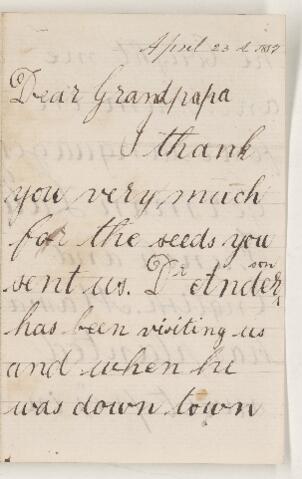 April 23d 1887
Dear Grandpapa
I thank
you very much
for the seeds you
sent us. Dr Anderson
has been visiting us
and when he
was down town